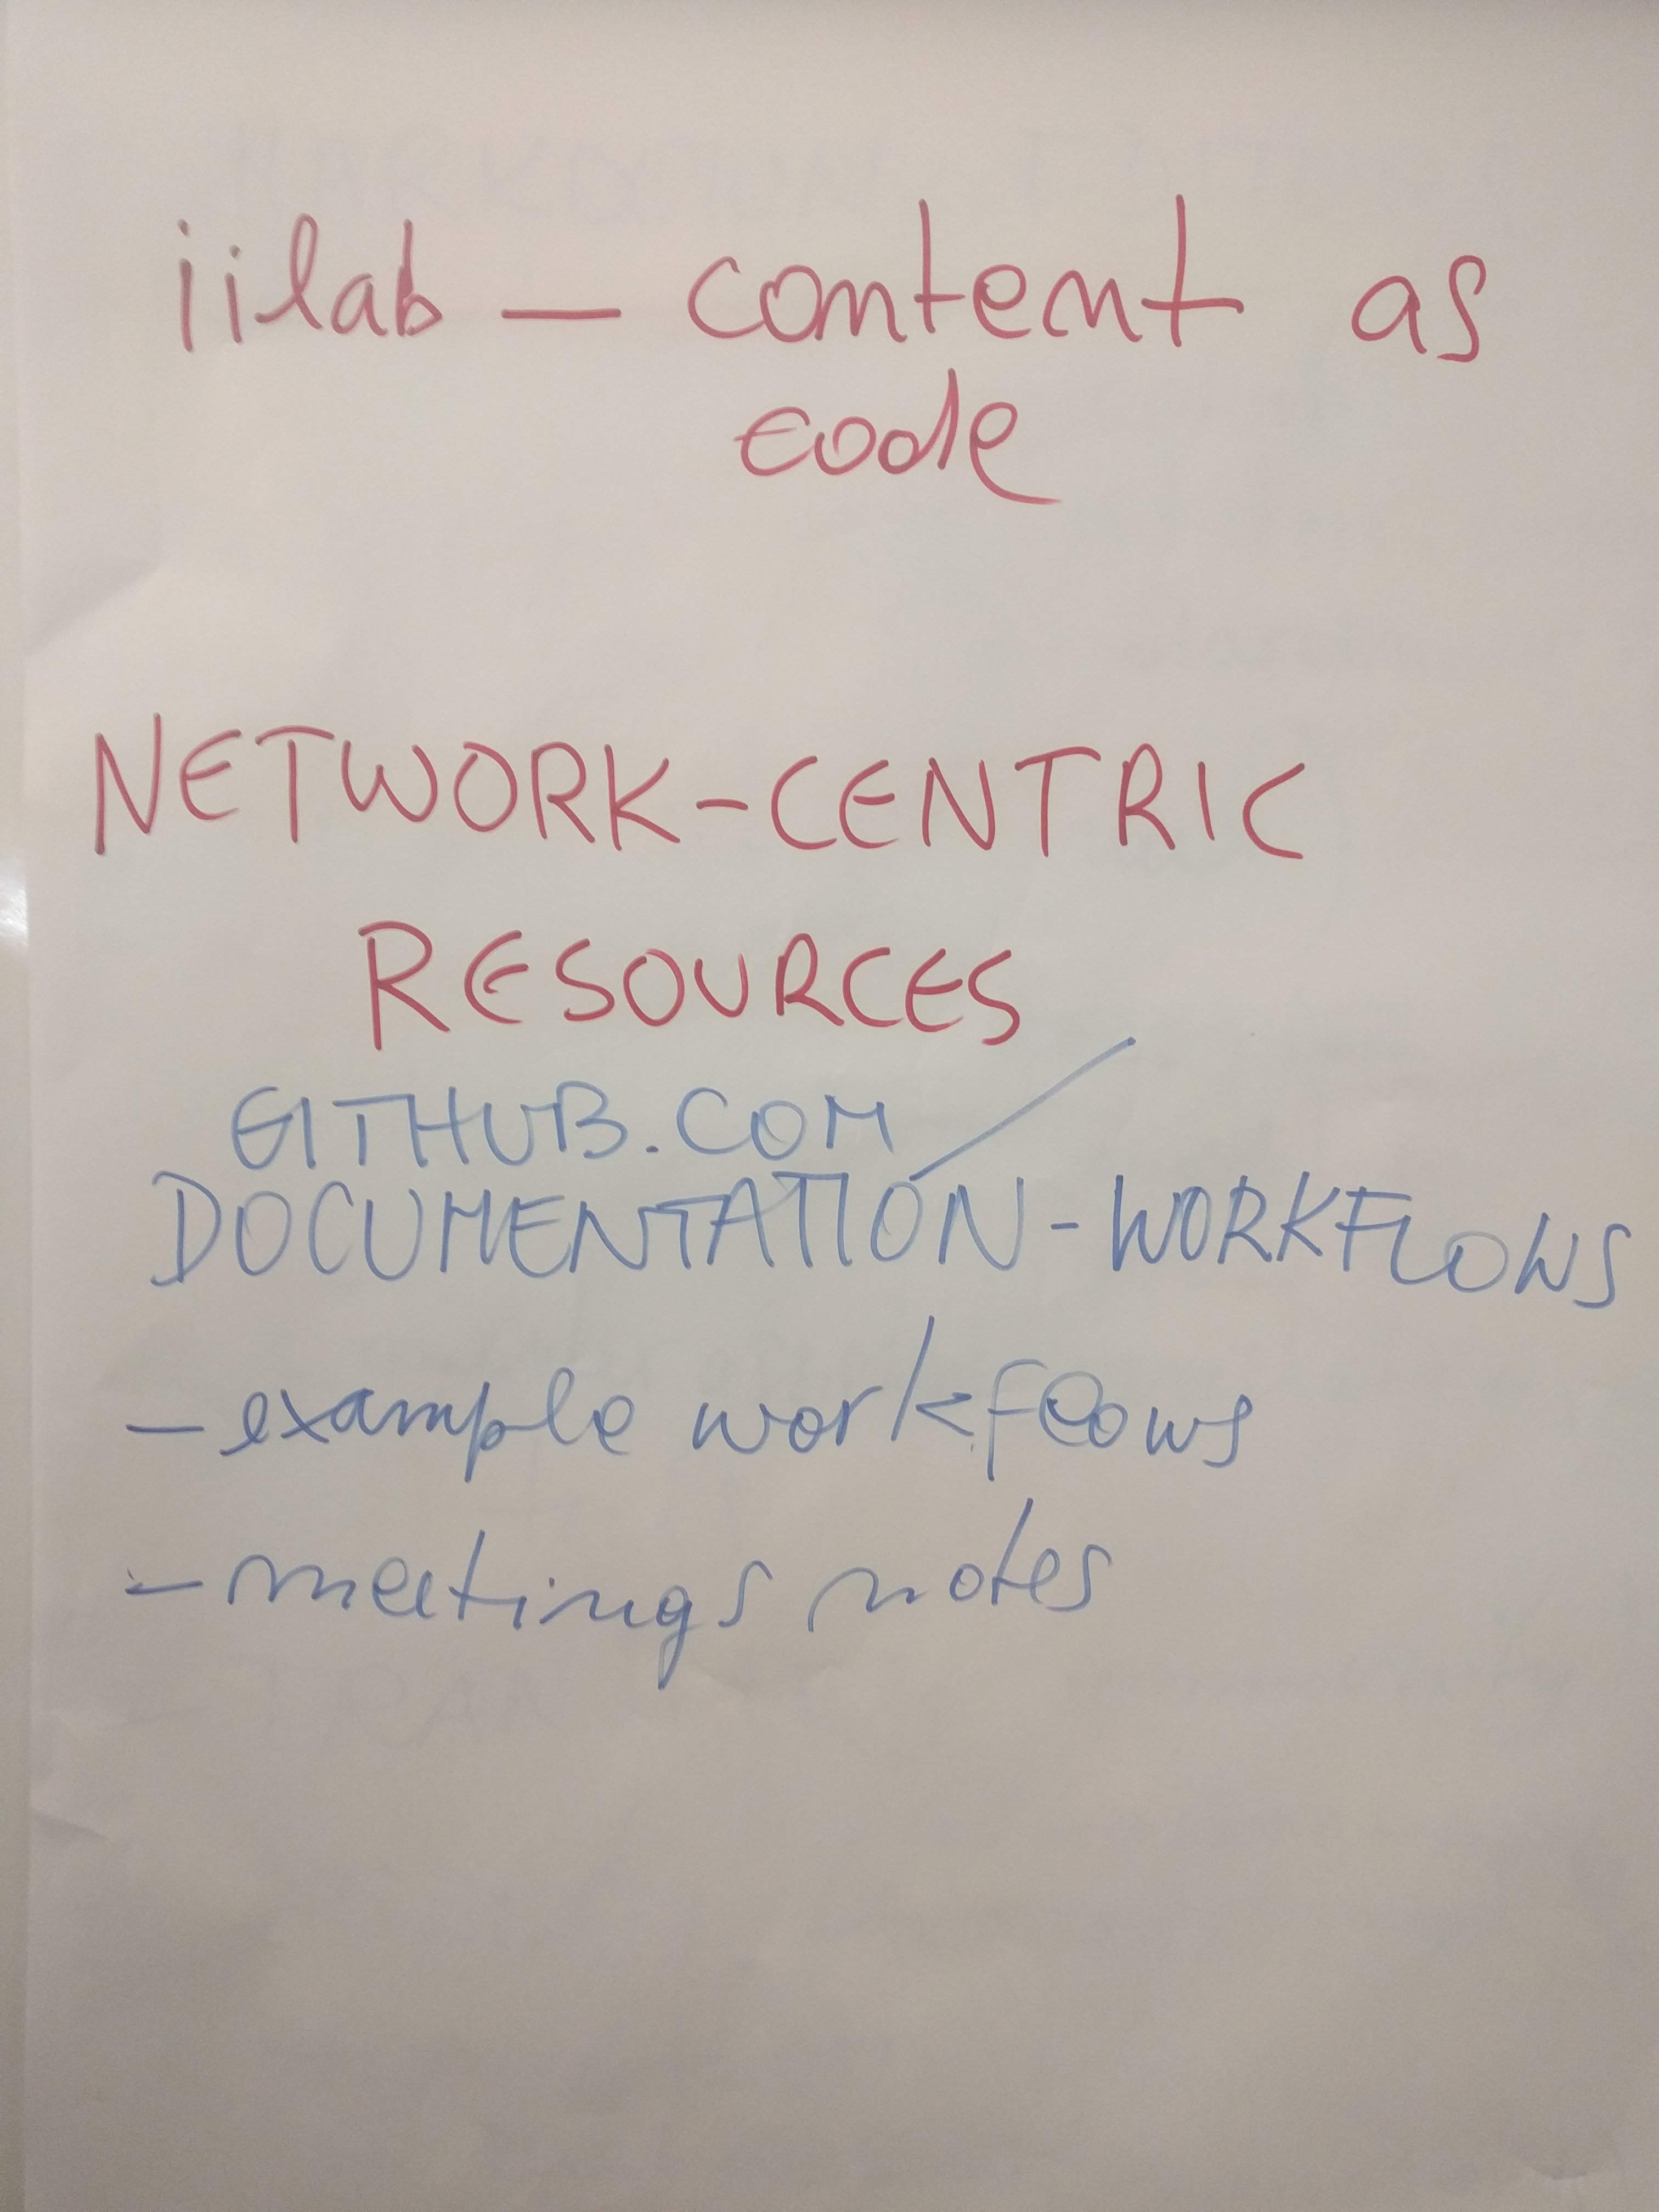 iilab — content as
code
NETWORK-CENTRIC
RESOURCES
GITHUB.COM/
DOCUMENTATION-WORKFLOWS
- example workflows
- meetings notes